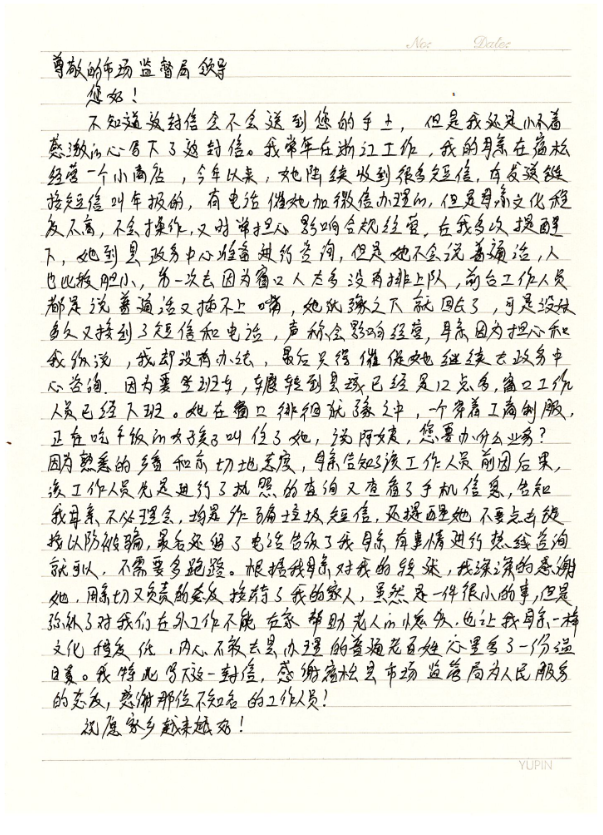 No: Date:
尊敬的市场监督局领导
您好!
不知道这封信会不会送到您的手上,但是我还是怀着
感激的心写下了这封信。我常年在浙江工作,我的母亲在宿松
经营一个小商店,今年以来,她陆续收到很多短信,有发送链
接短信叫年报的,有电话催她加微信办理的,但是母亲文化程
度不高,不会操作,又时常担心影响合规经营,在我多次提醒
下,她到县政务中心准备进行咨询,但是她不会说普通话,人
也比较胆小,第一次去因为窗口人太多没有排上队,前台工作人员
都是说普通话又插不上嘴,她犹豫之下就回去了,可是没过
多久又接到了短信和电话,声称会影响经营,母亲因为担心和
我诉说,我却没有办法,最后只得催促她继续去政务中
心咨询.因为要坐班车,辗转到县城已经是12点多,窗口工作
人员已经下班。她在窗口徘徊犹豫之中,一个穿着工商制服,
正在吃午饭的女孩子叫住了她,说阿姨,您要办什么业务?
因为熟悉的乡音和亲切地态度,母亲告知了该工作人员前因后果,
该工作人员先是进行了执照的查询又查看了手机信息,告知
我母亲不必理会,均是诈骗垃圾短信,还提醒她不要点击链
接以防被骗,最后还留了电话告诉了我母亲有事情进行热线咨询
就可以,不需要多跑路。根据我母亲对我的转述,我深深的感谢
她,用亲切又负责的态度接待了我的家人,虽然是一件很小的事,但是
弥补了对我们在外工作不能在家帮助老人的愧疚,也让我母亲一样
文化程度低,内心不敢去县办理的普通老百姓心里多了一份温
暖。我特此写下这一封信,感谢宿松县市场监管局为人民服务
的态度,感谢那位不知名的工作人员!
祝愿家乡越来越好!
YUPIN